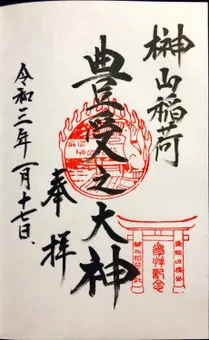 榊山稲荷
豊受之大神
奉拝
令和三年一月十七日、
参拝記念